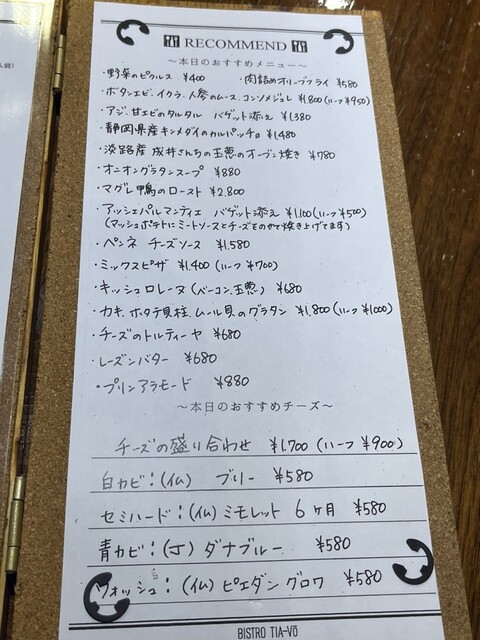 RECOMMEND
～本日のおすすめメニュー～
・野菜のピクルス ¥400 ・肉詰めオリーブフライ ¥580
・ボタンエビ、イクラ、人参のムース、コンソメジュレ ¥1,800 (ハーフ¥950)
・アジ、甘エビのタルタル バゲット添え ¥1,380
・静岡県産キンメダイのカルパッチョ ¥1,480
・淡路産 成井さんちの玉葱のオーブン焼き ¥780
・オニオングラタンスープ ¥880
・マグレ鴨のロースト ¥2.800
・アッシェパルマンティエ バゲット添え ¥1,100 (ハーフ¥500)
(マッシュポテトにミートソースとチーズをのせて焼き上げてます)
・ペンネ チーズソース ¥1.580
・ミックスピザ ¥1.400 (ハーフ ¥700)
・キッシュロレーヌ (ベーコン、玉葱) ¥680
・カキ、ホタテ貝柱、ムール貝のグラタン ¥1.800 (ハーフ¥1000)
・チーズのトルティーヤ ¥680
・レーズンバター ¥680
・プリンアラモード ¥880
～本日のおすすめチーズ～
チーズの盛り合わせ ¥1,700 (ハーフ ¥900)
白カビ：(仏) ブリー ¥580
セミハード：(仏) ミモレット 6ヶ月 ¥580
青カビ：(丁) ダナブルー ¥580
ウォッシュ：(仏) ピエダングロワ ¥580
BISTRO TIA-VÓ